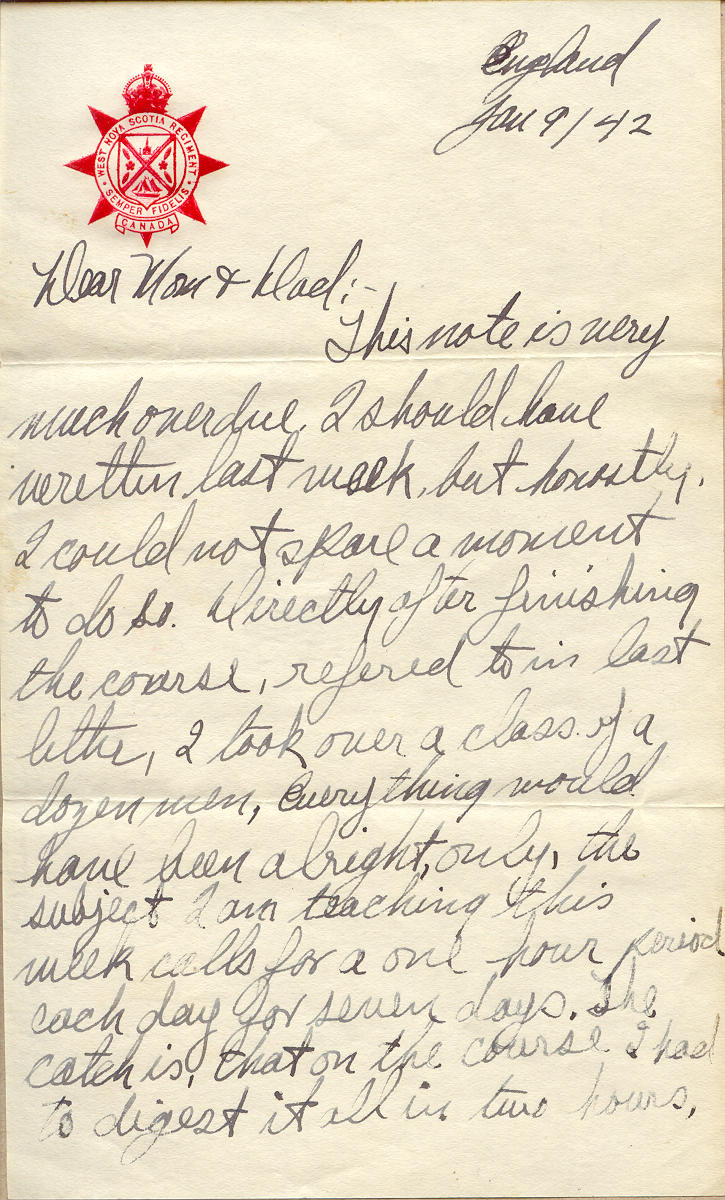 England
Jan 9/42
WEST NOVA SCOTIA REGIMENT
SEMPER FIDELIS
CANADA
Dear Mom & Dad:-
This note is very
much overdue. I should have
written last week, but honostly,
I could not spare a moment
to do so. Directly after finishing
the course, refered to in last
letter, I took over a class of a
dozen men, Everything would
have been alright, only, the
subject I am teaching this
week calls for a one hour period
each day for seven days. The
catch is, that on the course I had
to digest it all in two hours,